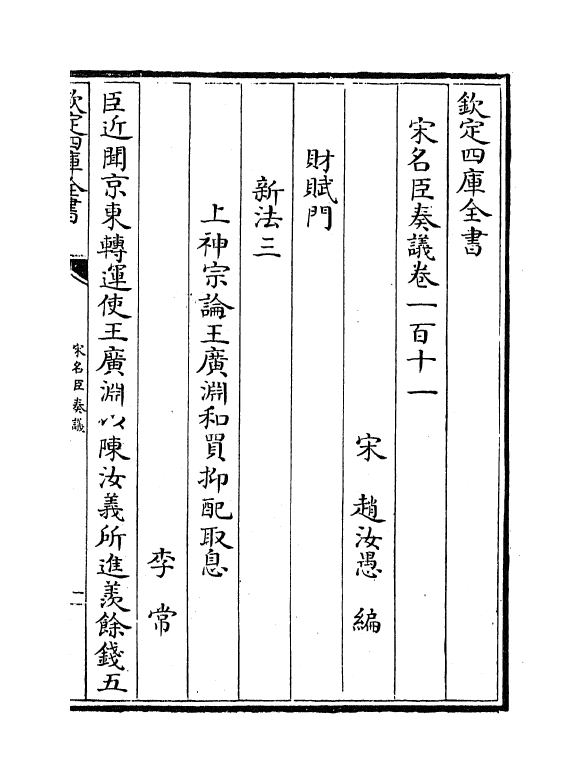 欽定四庫全書
宋名臣奏議卷一百十一
宋 趙汝愚 編
財賦門
新法三
上神宗論王廣淵和買抑配取息
李常
臣近聞京東轉運使王廣淵以陳汝義所進羨餘錢五
欽定四庫全書
宋名臣奏議
二